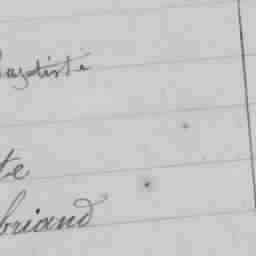 Baptiste
te
briand